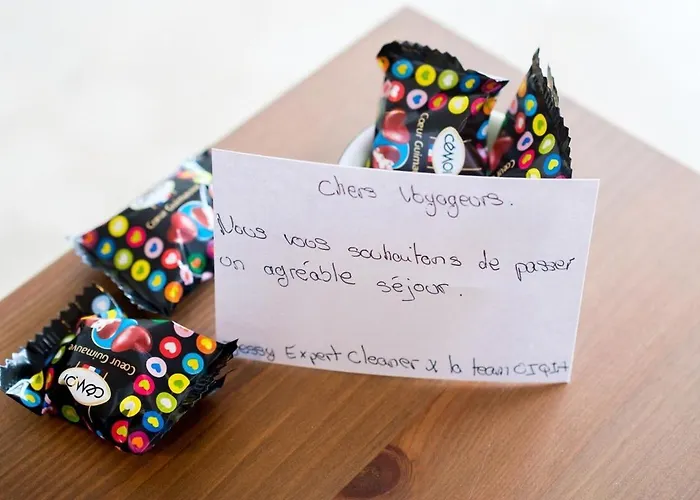 Cœur Guimauve
CéMOI
Cœur Guimauve
Chers Voyageurs.
Nous vous souhaitons de passer
un agréable séjour.
Jessy Expert Cleaner x la team
Cœur Guimauve
CéMOI